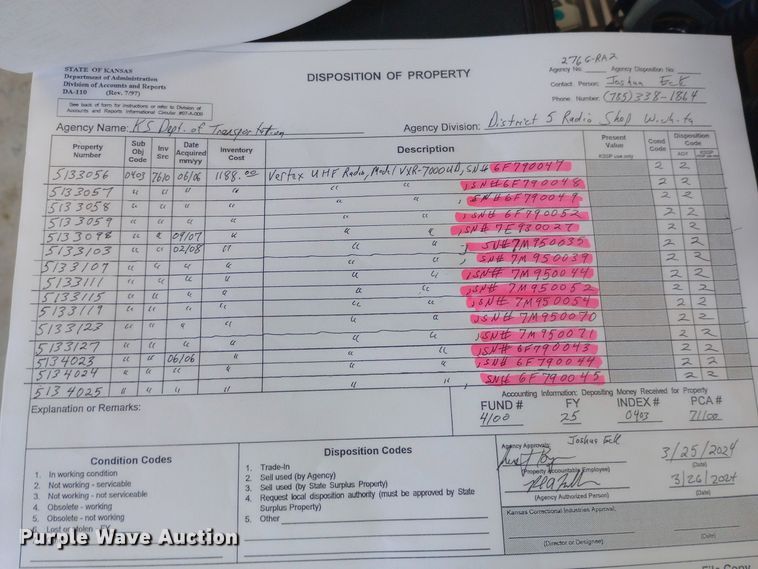 STATE OF KANSAS
Department of Administration
Division of Accounts and Reports
DA-110 (Rev. 7/97)
See back of form for instructions or refer to Division of
Accounts and Reports Informational Circular #07-A-009
DISPOSITION OF PROPERTY
276G-RA2
Agency No. Agency Disposition No.
Contact Person: Joshua Eck
Phone Number: (785) 338-1864
Agency Name: KS Dept. of Transportation
Agency Division: District 5 Radio Shop Wichita
Property Number Sub Obj Code Inv Src Date Acquired mm/yy Inventory Cost Description Present Value KSSP use only Cond Code Disposition Code AGY
5133056 0403 7610 06/06 1188.00 Vertex UHF Radio, Model VXR-7000UD, SN# 6F790047 2 2
5133057 " " " " " " , SN# 6F790048 2 2
5133058 " " " " " " , SN# 6F790049 2 2
5133059 " " " " " " , SN# 6F790052 2 2
5133098 " " 09/07 " " " , SN# 7E930027 2 2
5133103 " " 02/08 " " " , SN# 7M950035 2 2
5133107 " " " " " " , SN# 7M950039 2 2
5133111 " " " " " " , SN# 7M950044 2 2
5133115 " " " " " " , SN# 7M950052 2 2
5133119 " " " " " " , SN# 7M950054 2 2
5133123 " " " " " " , SN# 7M950070 2 2
5133127 " " " " " " , SN# 7M950071 2 2
5134023 " " 06/06 " " " , SN# 6F790043 2 2
5134024 " " " " " " , SN# 6F790044 2 2
5134025 " " " " " " , SN# 6F790045 2 2
Explanation or Remarks:
Accounting Information: Depositing Money Received for Property
FUND # FY INDEX # PCA #
4100 25 0403 71100
Condition Codes
1. In working condition
2. Not working - serviceable
3. Not working - not serviceable
4. Obsolete - working
5. Obsolete - not working
6. Lost or stolen - FY
Disposition Codes
1. Trade-In
2. Sell used (by Agency)
3. Sell used (by State Surplus Property)
4. Request local disposition authority (must be approved by State
Surplus Property)
5. Other
Agency Approvals: Joshua Eck
3/25/2024
(Property Accountable Employee) (Date)
3/26/2024
(Agency Authorized Person) (Date)
Kansas Correctional Industries Approval:
(Director or Designee) (Date)
File Copy
Purple Wave Auction